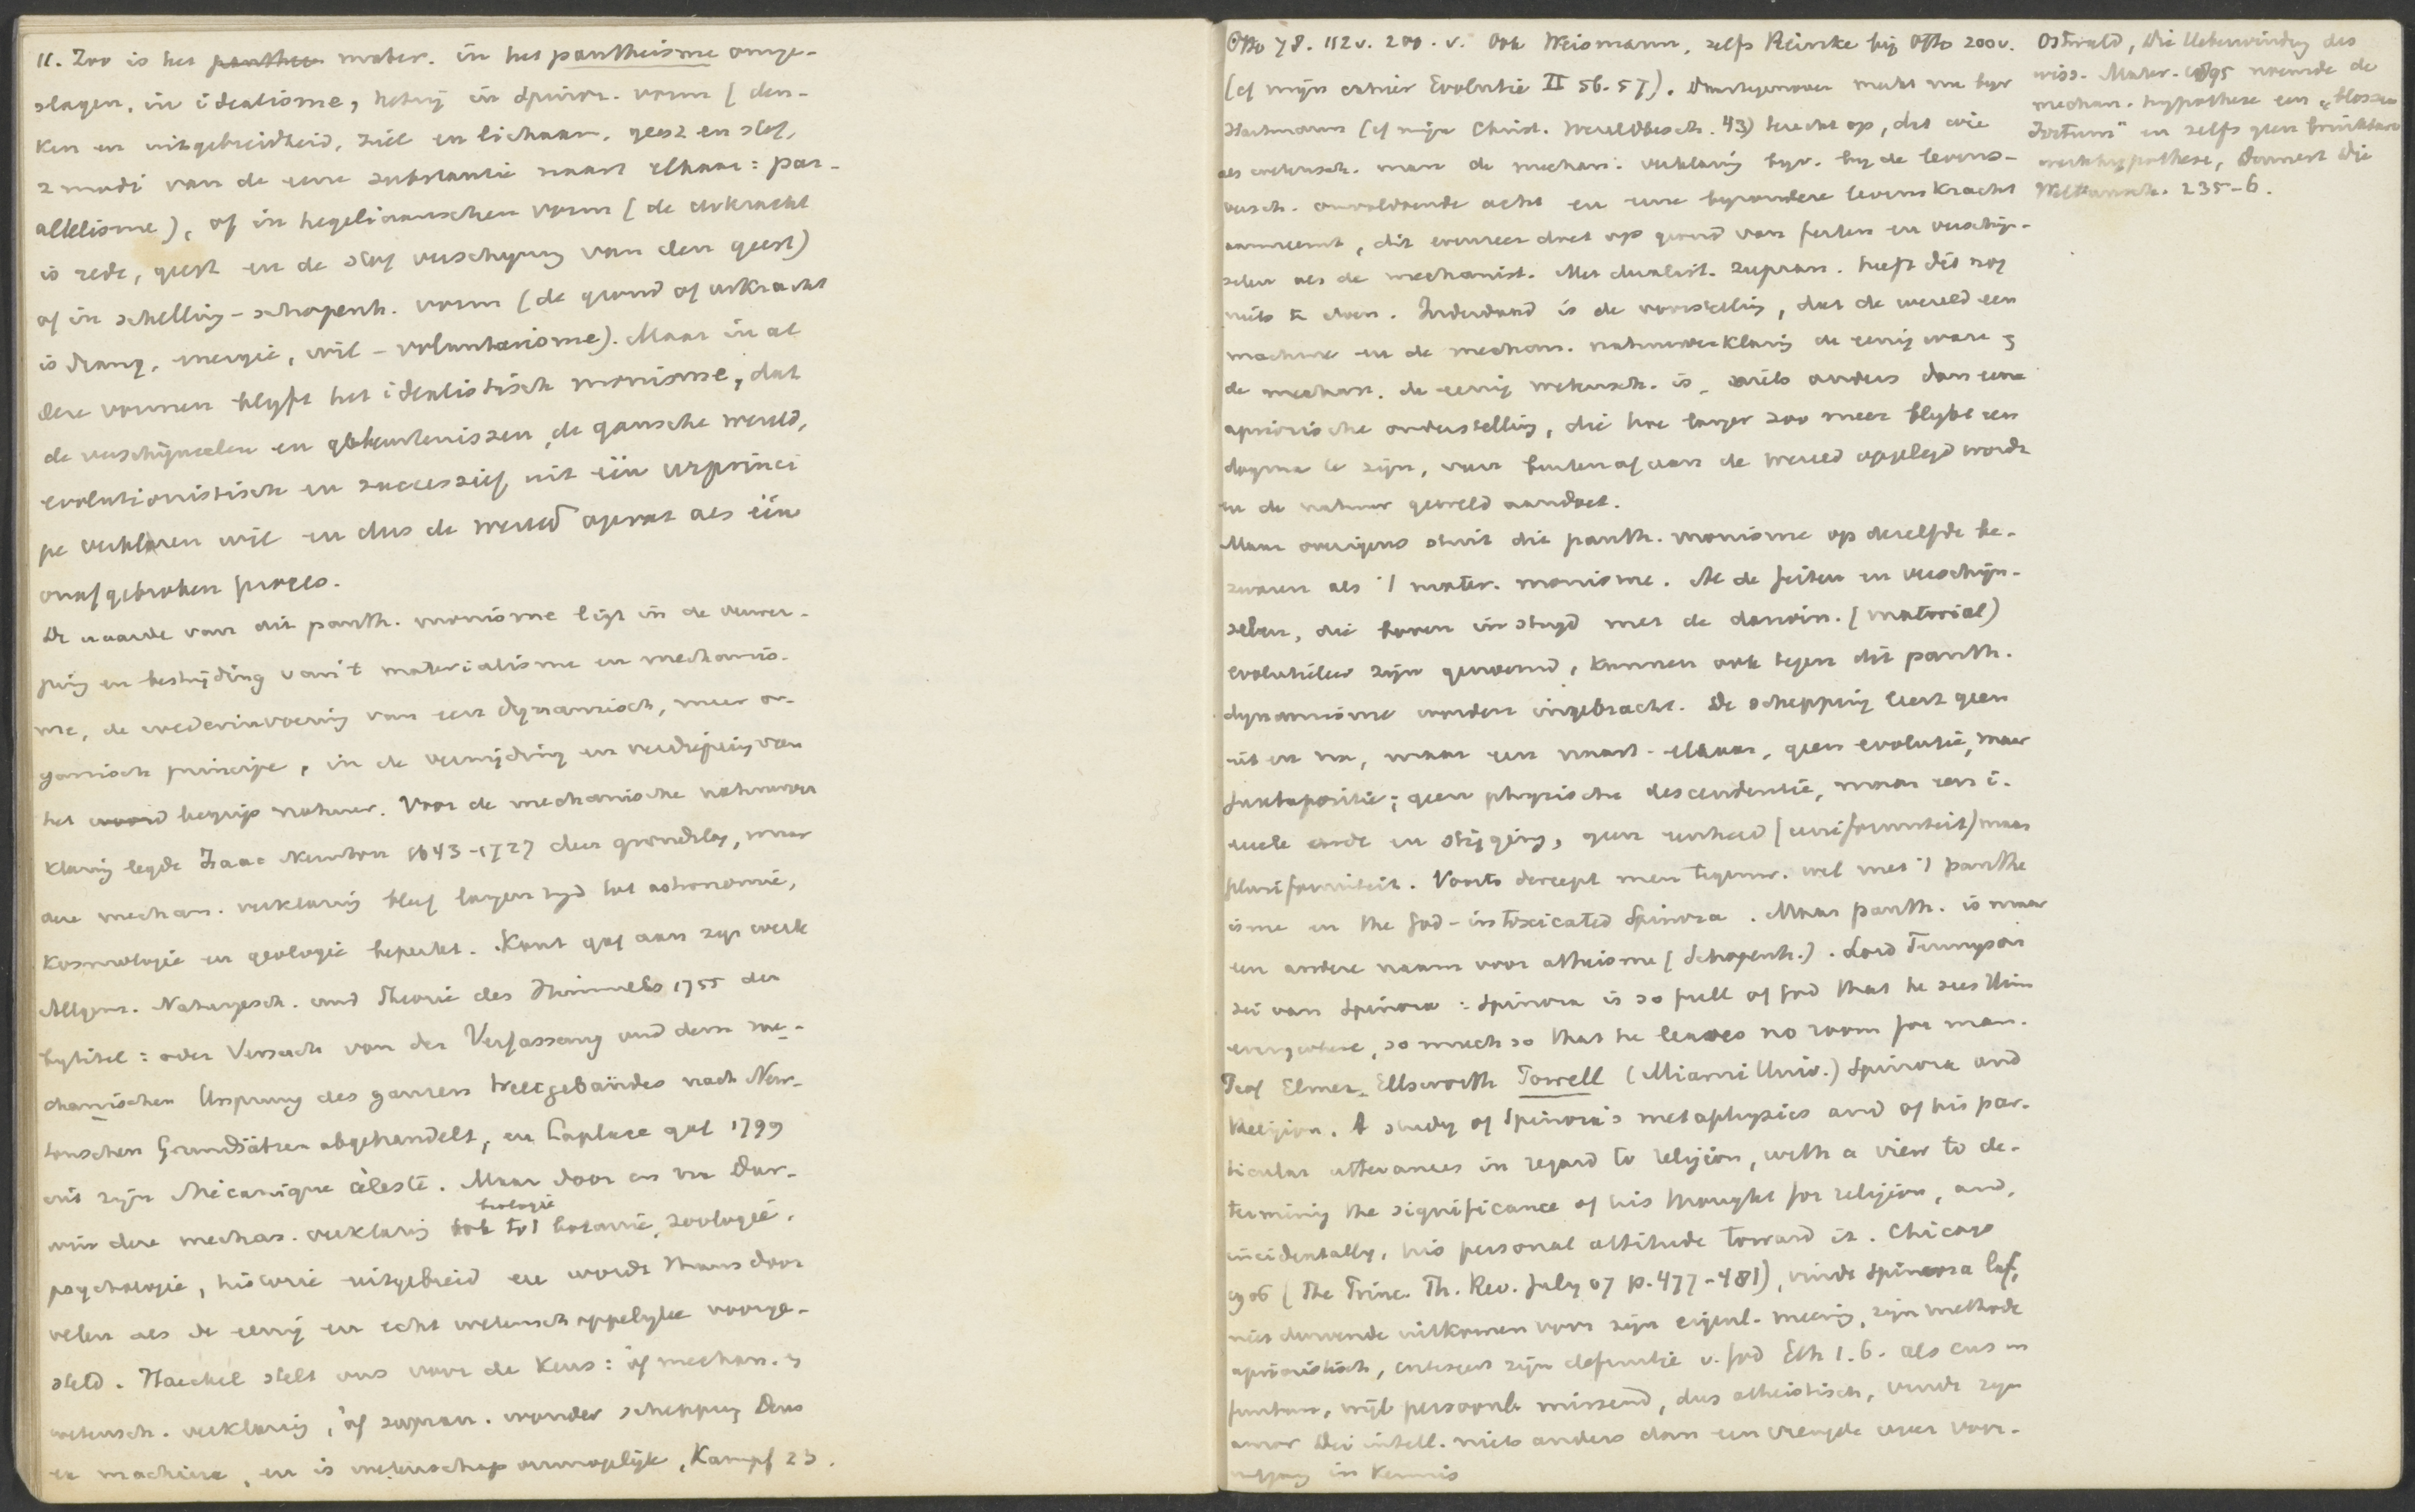 11. Zoo is het panthei mater. in het pantheisme omge-
slagen, in idealisme, hetzij in Spinoz. vorm (den-
ken en uitgebreidheid, ziel en lichaam, geest en stof,
2 modi van de eene substantie naast elkaar: par-
allelisme), of in hegeliaanschen vorm (de oerkracht
is rede, geest en de stof verschijning van den geest)
of in Schelling-Schopenh. vorm (de grond of oerkracht
is drang, energie, wil - voluntarisme). Maar in al
deze vormen blijft het idealistisch monisme, dat
de verschijnselen en gebeurtenissen, de gansche wereld,
evolutionistisch en successief uit één oerprinci
pe verklaren wil en dus de wereld opvat als één
onafgebroken proces.
De waarde van dit panth. monisme ligt in de verwer-
ping en bestrijding van 't materialisme en mechanis-
me, de wederinvoering van een dynamisch, meer or-
ganisch principe, in de verrijking en verdieping van
het woord begrip natuur. Voor de mechanische natuurver
klaring legde Isaac Newton 1643-1727 den grondslag, maar
deze mechan. verklaring bleef langen tijd tot astronomie,
kosmologie en geologie beperkt. Kant gaf aan zijn werk
Allgem. Naturgesch. und Theorie des Himmels 1755 den
bytitel: oder Versuch von der Verfassung und dem me-
chanischen Ursprung des ganzen Weltgebäudes nach New-
tonschen Grundsätzen abgehandelt, en Laplace gaf 1799
uit zijn Mécanique céleste. Maar door en na Dar-
biologie
win deze mechan. verklaring ook tot botanie, zoologie,
psychologie, historie uitgebreid en wordt thans door
velen als de eenig en echt wetenschappelijke voorge-
steld. Haeckel stelt ons voor de keus: òf mechan. en
wetensch. verklaring, òf supran. wonder schepping Deus
ex machina, en is wetenschap onmogelijk, Kampf 23.
Otto 78. 112v. 200. v. Ook Weismann, zelfs Reinke bij Otto 200v.
(cf mijn cahier Evolutie II 56. 57). Daartegenover merkt nu bijv
Hartmann (cf mijn Christ. Wereldbesch. 43) terecht op, dat wie
als wetensch. man de mechan. verklaring bijv. bij de levens-
versch. onvoldoende acht en eene bijzondere levenskracht
aanneemt, dit evenzeer doet op grond van feiten en verschijn-
selen als de mechanist. Met dualist. supran. heeft dit nog
niets te doen. Inderdaad is de voorstelling, dat de wereld een
machine en de mechan. natuurverklaring de eenig ware en
de mechan. de eenig wetensch. is, niets anders dan eene
aprioristische onderstelling, die hoe langer zoo meer blijkt een
dogma te zijn, van buiten af aan de wereld opgelegd wordt
en de natuur geweld aandoet.
Maar overigens stuit dit panth. monisme op dezelfde be-
zwaren als 't mater. monisme. Al de feiten en verschijn-
selen, die boven in strijd met de darwin. (material)
evolutieleer zijn genoemd, kunnen ook tegen dit panth.
dynamisme worden ingebracht. De schepping leert geen
uit en na, maar een naast-elkaar, geen evolutie, maar
juxtapositie; geen physische descendentie, maar een i-
deele orde en stijging, geen eenheid (uniformiteit) maar
pluriformiteit. Voorts dweept men tegenw. wel met 't panthe
isme en the God-intoxicated Spinoza. Maar panth. is maar
een andere naam voor atheisme (Schopenh.). Lord Tennyson
zei van Spinoza: Spinoza is so full of God that he sees Him
everywhere, so much so that he leaves no room for man.
Prof Elmer Ellsworth Powell (Miami Univ.) Spinoza and
Religion. A study of Spinoza's metaphysics and of his par-
ticular utterances in regard to religion, with a view to de-
termining the significance of his thought for religion, and,
incidentally, his personal attitude toward it. Chicago
1906 (The Princ. Th. Rev. July 07 p. 477-481), vindt Spinoza laf,
niet durvende uitkomen voor zijn eigenl. meening, zijn methode
aprioristisch, zijn definitie v. God Eth 1. 6. als ens
, wijl persoonlk. missend, dus atheistisch, vindt zijn
amor Dei intell. niets anders dan een vreugde over voor-
uitgang in kennis
Ostwald, Die Ueberwindung des
wiss. Mater. 1895 noemde de
mechan. hypothese een „blosser
Irrtum" en zelfs geen bruikbare
werkhypothese, Dennert Die
Weltansch. 235-6.